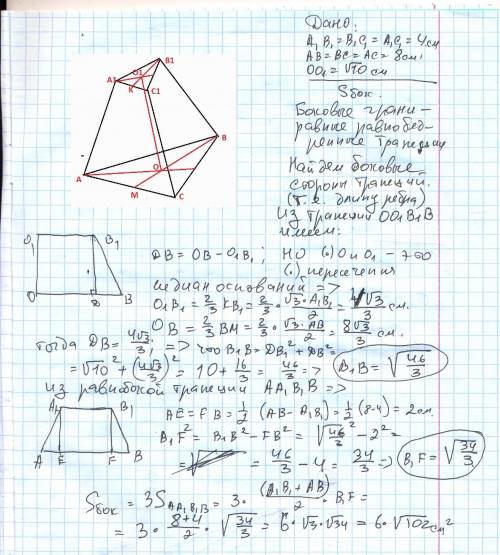 Дано:
A₁B₁ = B₁C₁ = A₁C₁ = 4см
AB = BC = AC = 8см
OO₁ = √10 см
Sбок.
Боковые грани –
равные равнобед-
ренные трапеции
Найдем боковые
стороны трапеции.
(т.е. длину ребра)
Из трапеции OO₁B₁B
имеем:
B1
O1
A1
K
C1
B
A
O
M
C
O₁
B₁
O
B
DB = OB - O₁B₁; НО (·) O и O₁ – это
(·) пересечения
медиан оснований =>
O₁B₁ = 2/3 KB₁ = 2/3 · √3·A₁B₁/2 = 4√3/3 см.
OB = 2/3 BM = 2/3 · √3·AB/2 = 8√3/3 см.
тогда DB = 4√3/3; => что B₁B = DB₁² + DB² =
= √10² + (4√3/3)² = 10 + 16/3 = 46/3 => B₁B = √46/3
из равнобокой трапеции AA₁B₁B =>
A₁
B₁
A
E
F
B
AE = FB = 1/2 (AB - A₁B₁) = 1/2 (8-4) = 2см.
B₁F² = B₁B² - FB² = √46/3² - 2² =
= 46/3 - 4 = 34/3 => B₁F = √34/3
Sбок = 3SAA₁B₁B = 3 · (A₁B₁ + AB)/2 · B₁F =
= 3 · 8+4/2 · √34/3 = 6 · √3 · √34 = 6 · √102 см²